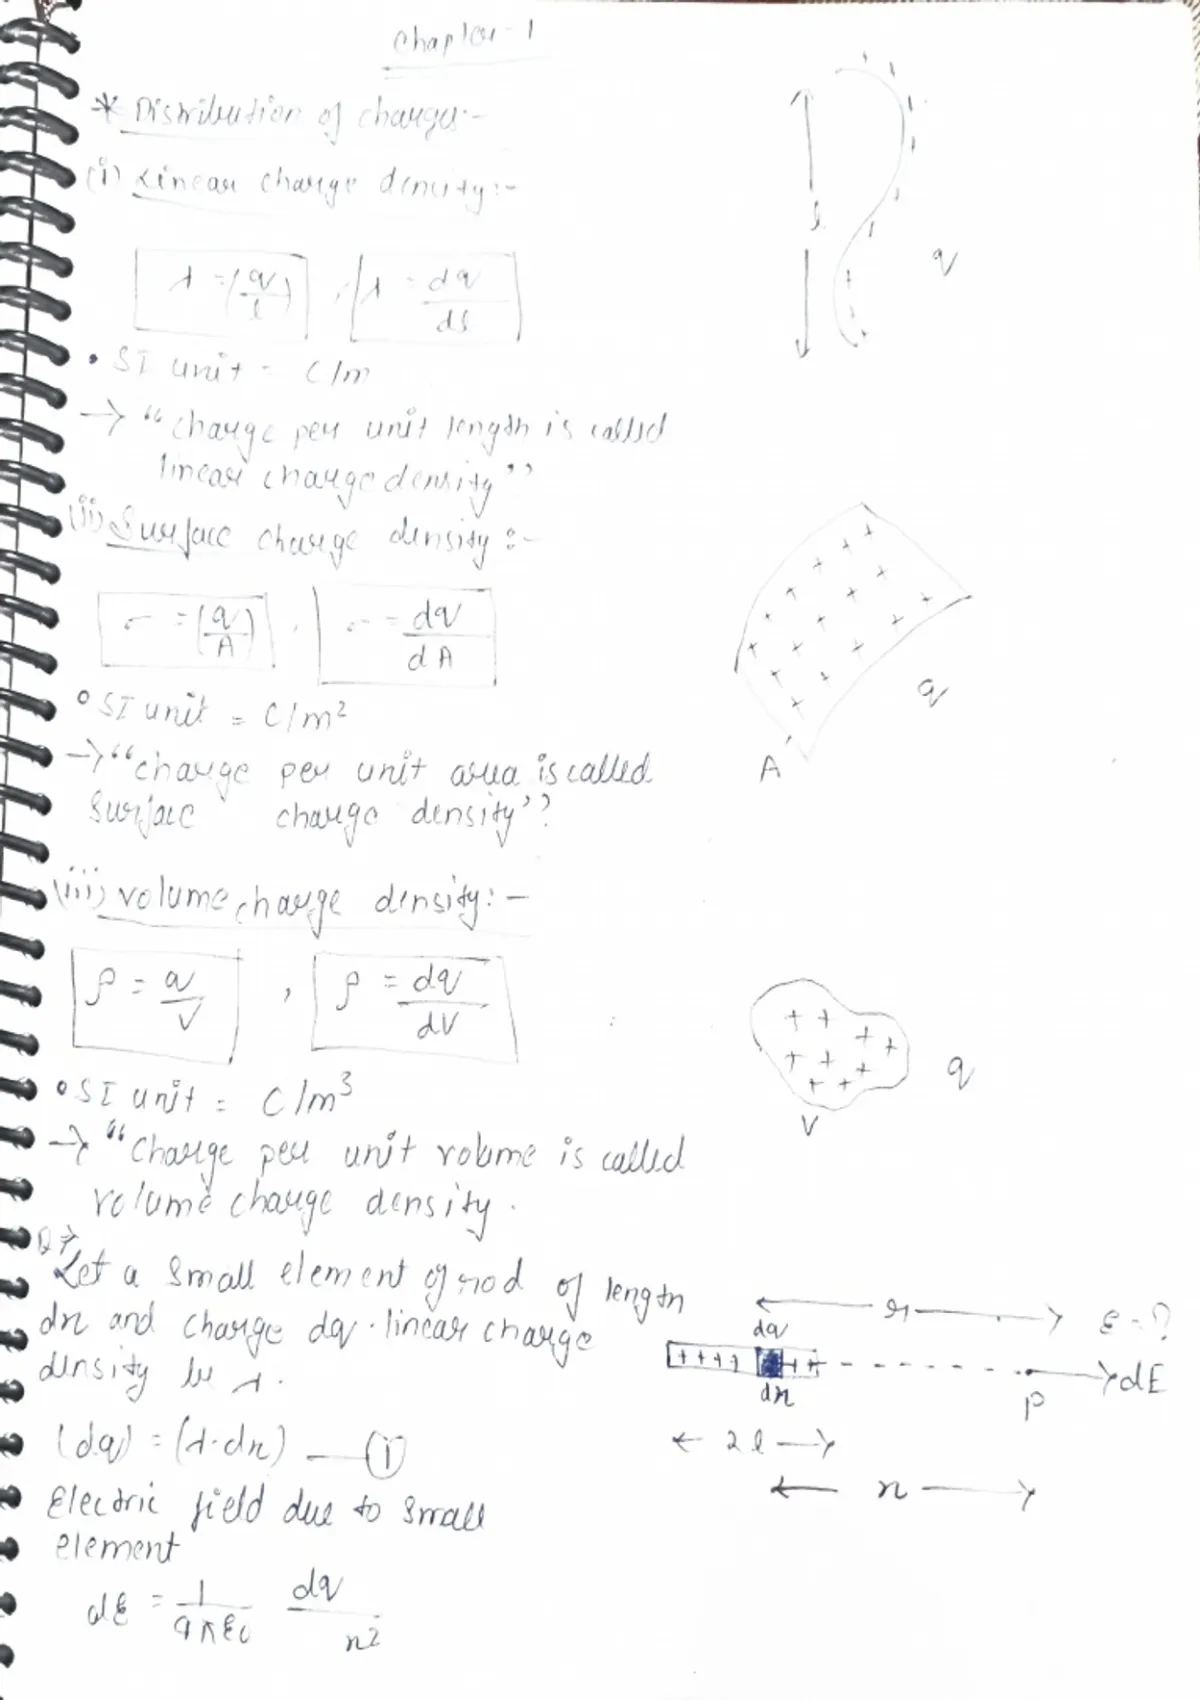 Chapter-1
* Distribution of charges:-
(i) Linear charge density:-
λ = (q/l) , λ = dq/dl
l
q
• SI unit - C/m
→ "charge per unit length is called
linear charge density"
(ii) Surface charge density :-
σ = (q/A) , σ = dq/dA
q
A
• SI unit = C/m²
→ "charge per unit area is called
Surface charge density"
(iii) volume charge density: -
ρ = q/V , ρ = dq/dV
q
V
• SI unit = C/m³
→ "Charge per unit volume is called
volume charge density.
Q→
Let a small element of rod of length
dx and charge dq . linear charge
density be λ.
(dq) = (λ·dx) — ①
Electric field due to small
element
dE = 1/4πε₀ dq/x²
r E = ?
dq
++++ +++ dE
dx P
← 2l →
← x →